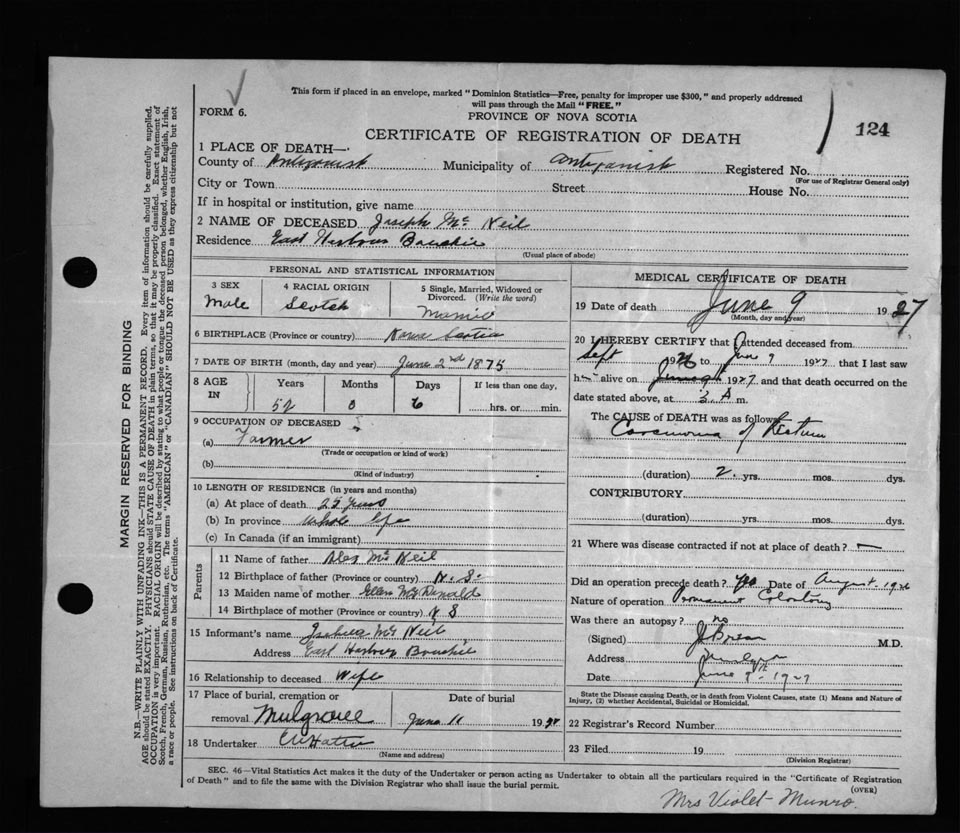 This form if placed in an envelope, marked "Dominion Statistics—Free, penalty for improper use $300," and properly addressed
will pass through the Mail "FREE."
FORM 6.
PROVINCE OF NOVA SCOTIA
CERTIFICATE OF REGISTRATION OF DEATH
124
1 PLACE OF DEATH—
County of Antigonish Municipality of Antigonish Registered No.
(For use of Registrar General only)
City or Town Street House No.
If in hospital or institution, give name
2 NAME OF DECEASED Joseph Mc Neil
Residence East Harbour Bouchie
(Usual place of abode)
PERSONAL AND STATISTICAL INFORMATION
3 SEX
Male
4 RACIAL ORIGIN
Scotch
5 Single, Married, Widowed or Divorced. (Write the word)
Married
6 BIRTHPLACE (Province or country) Nova Scotia
7 DATE OF BIRTH (month, day and year) June 2nd 1875
8 AGE IN Years Months Days If less than one day,
52 0 6 hrs. or min.
9 OCCUPATION OF DECEASED
(a) Farmer
(Trade or occupation or kind of work)
(b)
(Kind of industry)
10 LENGTH OF RESIDENCE (in years and months)
(a) At place of death 25 years
(b) In province whole life
(c) In Canada (if an immigrant)
Parents
11 Name of father Alex Mc Neil
12 Birthplace of father (Province or country) N. S.
13 Maiden name of mother Ellen McDonald
14 Birthplace of mother (Province or country) N S
15 Informant's name Isabella Mc Neil
Address East Harbour Bouchie
16 Relationship to deceased Wife
17 Place of burial, cremation or removal Mulgrave
Date of burial
June 11 1927
18 Undertaker
(Name and address)
MEDICAL CERTIFICATE OF DEATH
19 Date of death June 9 1927
(Month, day and year)
20 I HEREBY CERTIFY that I attended deceased from
Sept 1926 to June 9 1927 that I last saw
him alive on June 9th 1927 and that death occurred on the
date stated above, at 3 A m.
The CAUSE OF DEATH was as follows:
Carcinoma of Rectum
(duration) 2 yrs. mos. dys.
CONTRIBUTORY
(duration) yrs. mos. dys.
21 Where was disease contracted if not at place of death?
Did an operation precede death? Yes Date of August 1926
Nature of operation Permanent Colostomy
Was there an autopsy? no
(Signed) M.D.
Address
Date June 9th 1927
State the Disease causing Death, or in death from Violent Causes, state (1) Means and Nature of Injury, (2) whether Accidental, Suicidal or Homicidal.
22 Registrar's Record Number
23 Filed 19
(Division Registrar)
SEC. 46—Vital Statistics Act makes it the duty of the Undertaker or person acting as Undertaker to obtain all the particulars required in the "Certificate of Registration
of Death" and to file the same with the Division Registrar who shall issue the burial permit.
(OVER)
Mrs Violet Munro.
MARGIN RESERVED FOR BINDING
N.B.—WRITE PLAINLY WITH UNFADING INK—THIS IS A PERMANENT RECORD. Every item of information should be carefully supplied.
AGE should be stated EXACTLY. PHYSICIANS should STATE CAUSE OF DEATH in plain terms, so that it may be properly classified. Exact statement of
OCCUPATION is very important. RACIAL ORIGIN will be described by stating to what people or tongue the deceased person belonged, whether English, Irish,
Scotch, French, German, Russian, Ruthenian, etc. The terms "AMERICAN" or "CANADIAN" SHOULD NOT BE USED as they express citizenship but not
a race or people. See instructions on back of Certificate.